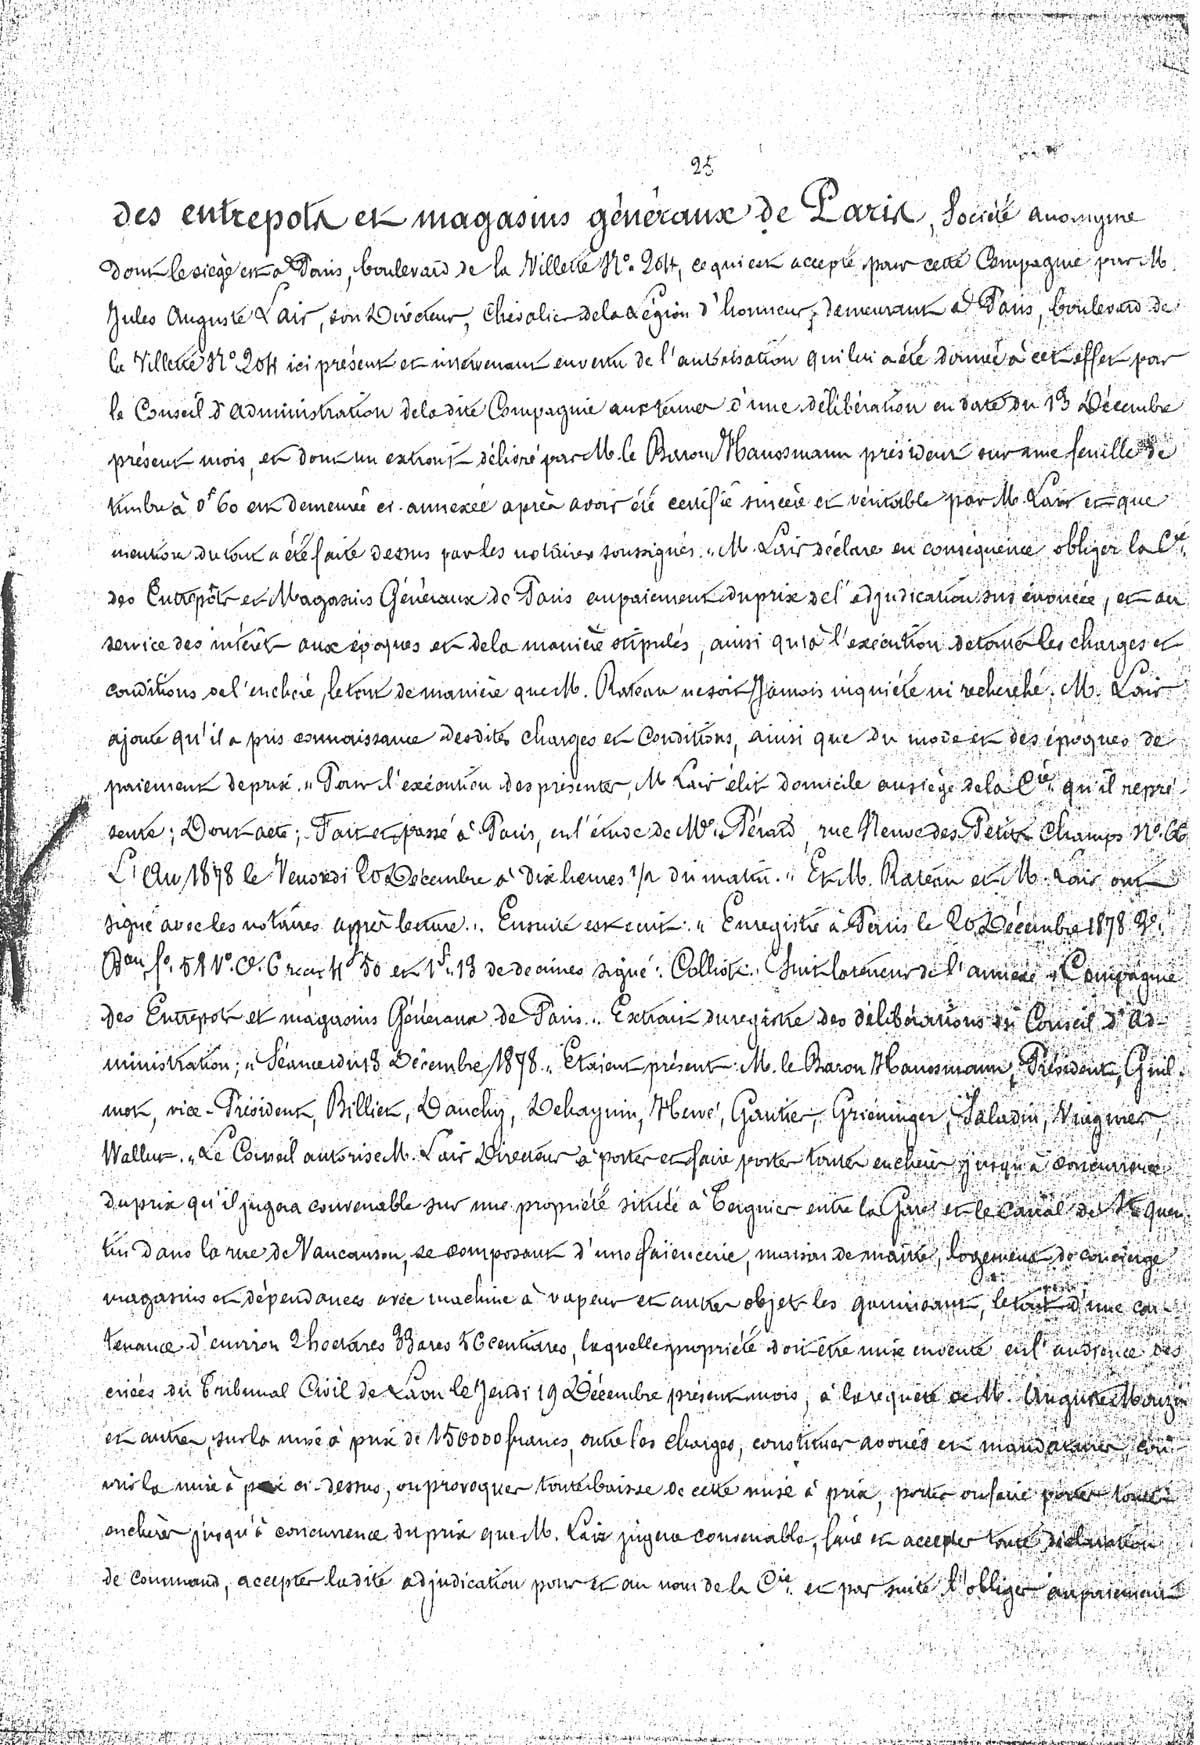 25
des entrepots et magasins généraux de Paris, Société anonyme
dont le siège est à Paris, boulevard de la Villette No. 204, ce qui est accepté pour cette Compagnie par M.
Jules Auguste Lair, son Directeur, Chevalier de la Légion d'honneur, demeurant à Paris, boulevard de
la Villette No 204 ici présent et intervenant en vertu de l'autorisation qui lui a été donnée à cet effet par
le Conseil d'administration de la dite Compagnie aux termes d'une délibération en date du 13 Décembre
présent mois, et dont un extrait délivré par M. le Baron Haussmann président sur une feuille de
timbre à 0f 60 est demeurée ci-annexée après avoir été certifié sincère et véritable par M. Lair et que
mention du tout a été faite dessus par les notaires soussignés. " M. Lair déclare en conséquence obliger la Cie
des Entrepôts et Magasins Généraux de Paris au paiement du prix de l'adjudication sus énoncée, et au
service des intérêt aux époques et de la manière stipulés, ainsi qu'à l'exécution de toutes les charges et
conditions de l'enchère, le tout de manière que M. Rateau ne soit Jamais inquiété ni recherché. M. Lair
ajoute qu'il a pris connaissance desdites charges et Conditions, ainsi que du mode et des époques de
paiement de prix. " Pour l'exécution des présentes, M. Lair élit domicile au siège de la Cie qu'il repré-
sente; Dont acte; Fait et passé à Paris, en l'étude de Me. Pérard, rue Neuve des Petits Champs No. 66
L'An 1878 le Vendredi 20 Décembre à dix heures 1/2 du matin. " Et M. Rateau et M. Lair ont
signé avec les notaires après lecture. " Ensuite est écrit: " Enregistré à Paris le 20 Décembre 1878 2e.
Bau fo. 51 Vo. C. 6 reçu 4f 50 et 1f. 13 de décimes signé: Colliot. " Suit la teneur de l'annexe " Compagnie
des Entrepots et magasins Généraux de Paris. " Extrait du registre des délibérations du Conseil d'Ad-
ministration; " Séance du 13 Décembre 1878. " Etaient présent: M. le Baron Haussmann, Président, Guil-
mot, vice-Président, Billiet, Dauchy, Dehaynin, Hervé, Gautier, Grieninger, Saladin, Vuignier,
Wallut. " Le Conseil autorise M. Lair Directeur à porter et faire porter toutes enchères jusqu'à concurrence
du prix qu'il jugera convenable sur une propriété située à Tergnier entre la Gare et le Canal de St Quen-
tin dans la rue de Vaucanson, se composant d'une faïencerie, maison de maître, logement de concierge
magasins et dépendances avec machine à vapeur et autres objets les garnissant, le tout d'une con-
tenance d'environ 2 hectares 33 ares 56 centiares, laquelle propriété doit être mise en vente en l'audience des
criées du Tribunal Civil de Laon le Jeudi 19 Décembre présent mois, à la requête de M. Auguste Mouzin
et autres, sur la mise à prix de 150000 francs, outre les charges, constituer avoués et mandataires, cou-
vrir la mise à prix ci-dessus, ou provoquer toute baisse de cette mise à prix, porter ou faire porter toutes
enchères jusqu'à concurrence du prix que M. Lair jugera convenable, faire et accepter toute déclaration
de command, accepter ladite adjudication pour et au nom de la Cie. et par suite l'obliger au paiement